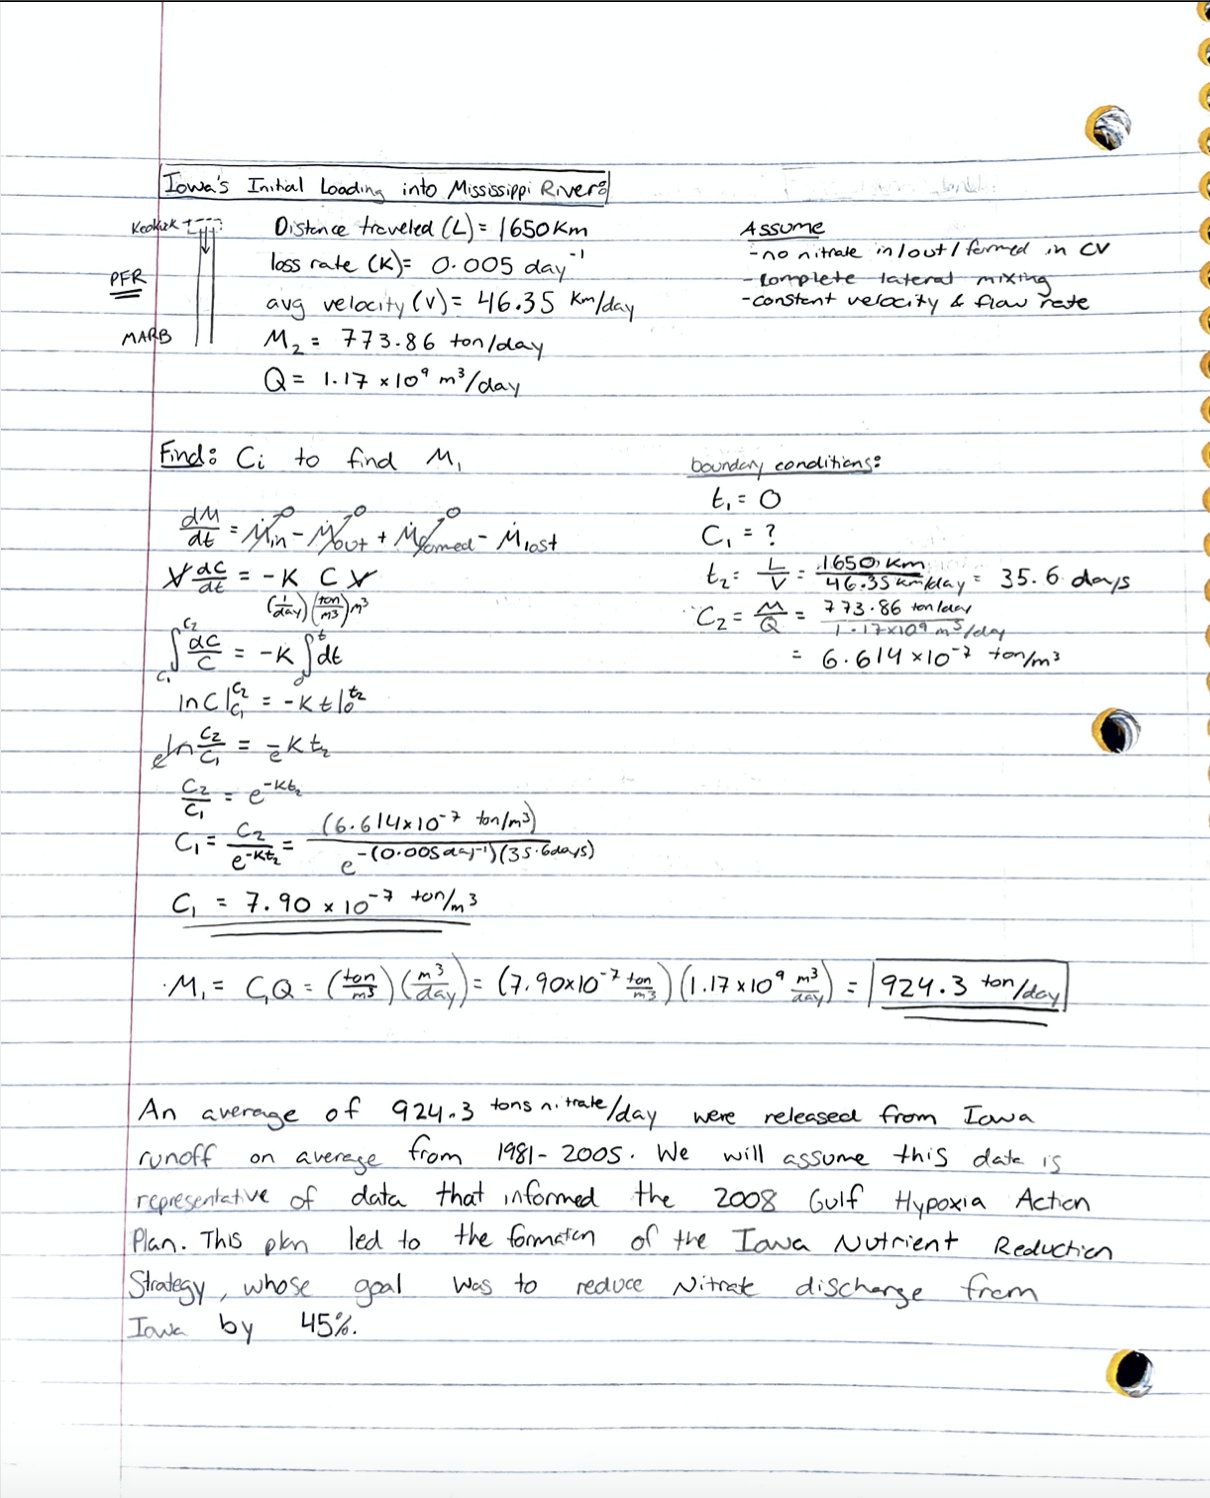 Iowa's Initial Loading into Mississippi River:
Keokuk
PFR
MARB
Distance traveled (L) = 1650 Km
loss rate (K) = 0.005 day⁻¹
avg velocity (v) = 46.35 Km/day
M₂ = 773.86 ton/day
Q = 1.17 ×10⁹ m³/day
Assume
-no nitrate in/out/formed in CV
-complete lateral mixing
-constant velocity & flow rate
Find: Ci to find M₁
dM/dt = Ṁin - Ṁout + Ṁformed - Ṁlost
0 0 0
V dC/dt = -K C V
(1/day)(ton/m³)m³
∫C₁^C₂ dC/C = -K ∫0^t dt
ln C|C₁^C₂ = -K t|0^t₂
e ln C₂/C₁ = e -K t₂
C₂/C₁ = e^-Kt₂
C₁ = C₂/e^-Kt₂ = (6.614×10⁻⁷ ton/m³)/e^-(0.005day⁻¹)(35.6days)
C₁ = 7.90 × 10⁻⁷ ton/m³
boundary conditions:
t₁ = 0
C₁ = ?
t₂ = L/V = 1650 Km/46.35 km/day = 35.6 days
C₂ = M/Q = 773.86 ton/day/1.17×10⁹ m³/day
= 6.614 ×10⁻⁷ ton/m³
M₁ = C₁Q = (ton/m³)(m³/day) = (7.90×10⁻⁷ ton/m³)(1.17×10⁹ m³/day) = 924.3 ton/day
An average of 924.3 tons nitrate/day were released from Iowa
runoff on average from 1981-2005. We will assume this data is
representative of data that informed the 2008 Gulf Hypoxia Action
Plan. This plan led to the formation of the Iowa Nutrient Reduction
Strategy, whose goal was to reduce Nitrate discharge from
Iowa by 45%.